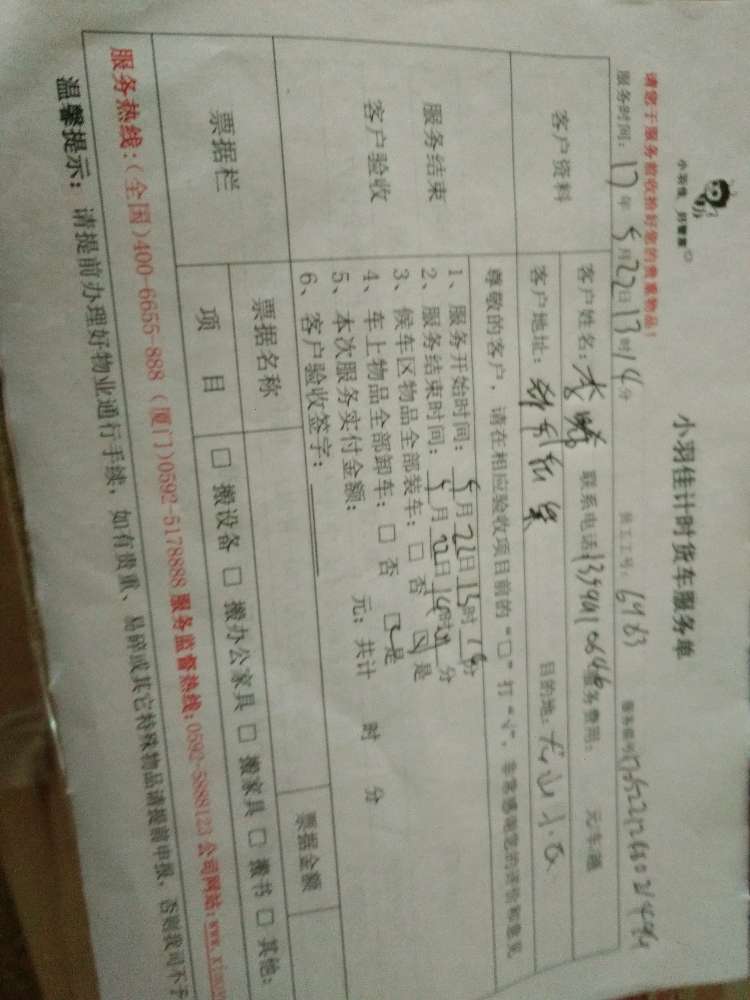 小羽佳计时货车服务单
小羽佳 好管家
请您于服务前收拾好您的贵重物品！
员工工号：6963
服务时间：17年5月22日13时14分
客户资料
客户姓名：李 联系电话 服务费用： 元/车/趟
客户地址： 目的地：龙山小区
服务结束
客户验收
尊敬的客户，请在相应验收项目前的“□”打“√”，非常感谢您的评价和意见
1、服务开始时间：5月22日13时 分
2、服务结束时间：5月22日14时 分
3、候车区物品全部装车：□否 ☑是
4、车上物品全部卸车：□否 ☑是
5、本次服务实付金额： 元；共计 时 分
6、客户验收签字：
票据栏
票据名称 票据金额
项 目 □搬设备 □搬办公家具 □搬家具 □搬书 □其他:
服务热线:(全国)400-6655-888 (厦门)0592-5178888 服务监督热线:0592-5888123 公司网站:www.
温馨提示：请提前办理好物业通行手续，如有贵重、易碎或其它特殊物品请提前申报，否则我司不予